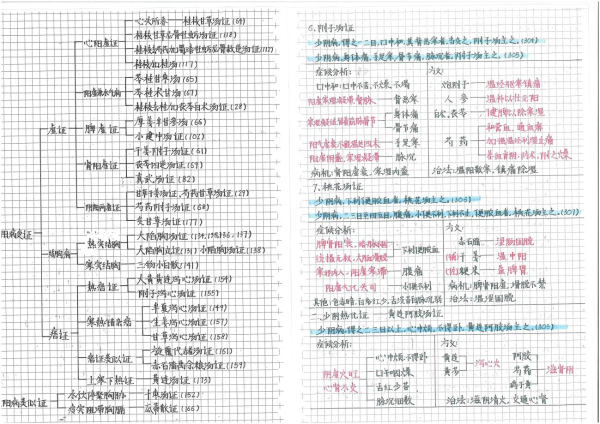 心阳虚证
心失所养 桂枝甘草汤证(64)
桂枝甘草龙骨牡蛎汤证(118)
桂枝加桂汤证(117)
阳虚兼水气证
苓桂甘枣汤证(65)
苓桂术甘汤证(67)
桂枝去桂加茯苓白术汤证(28)
虚证
脾虚证
厚姜半甘参汤(66)
小建中汤证(102)
肾阳虚证
干姜附子汤证(61)
茯苓四逆汤证(69)
真武汤(82)
阴阳两虚证
甘草干姜汤证、芍药甘草汤证(29)
芍药附子汤(68)
炙甘草汤(177)
太阳病变证
结胸病
热实结胸
大陷胸汤证(134,135,136,137)
大陷胸丸证(131) 小陷胸汤证(138)
寒实结胸 三物小白散(141)
痞证
热痞证
大黄黄连泻心汤证(154)
附子泻心汤证(155)
寒热错杂痞
半夏泻心汤证(149)
生姜泻心汤证(157)
甘草泻心汤(158)
痞证类似证
旋覆代赭汤证(161)
赤石脂禹余粮汤证(159)
上寒下热证 黄连汤证(173)
太阳病类似证
水饮停聚胸胁 十枣汤证(152)
痰实阻滞胸膈 瓜蒂散证(166)
6.附子汤证
少阴病,得之一二日,口中和,其背恶寒者,当灸之,附子汤主之。(304)
少阴病,身体痛,手足寒,骨节痛,脉沉者,附子汤主之。(305)
症候分析: 方义:
口中和:口中不苦、不燥、不渴 炮附子 温经驱寒镇痛
背恶寒 人参 温补以壮元阳
身体痛 白术、茯苓 健脾以除寒湿
骨节痛 和营血、通血痹
手足寒 芍药
脉沉
病机:肾阳虚衰,寒湿内盛 治法:温阳散寒,镇痛除湿
7.桃花汤证
少阴病,下利便脓血者,桃花汤主之。(306)
少阴病,二三日至四五日,腹痛,小便不利,下利不止,便脓血者,桃花汤主之。(307)
症候分析: 方义:
下利便脓血 赤石脂 涩肠固脱
干姜 温中阳
腹痛 粳米 益脾胃
小便不利 病机:脾肾阳虚,滑脱不禁
治法:温涩固脱
二、少阴热化证 黄连阿胶汤证
少阴病,得之二三日以上,心中烦,不得卧,黄连阿胶汤主之。(303)
症候分析: 方义:
阴虚火旺
心肾不交
心中烦、不得卧
口干咽燥
舌红少苔
脉沉细数
黄连
黄芩
泻心火
阿胶
芍药
鸡子黄
滋肾阴
治法:滋阴清火,交通心肾